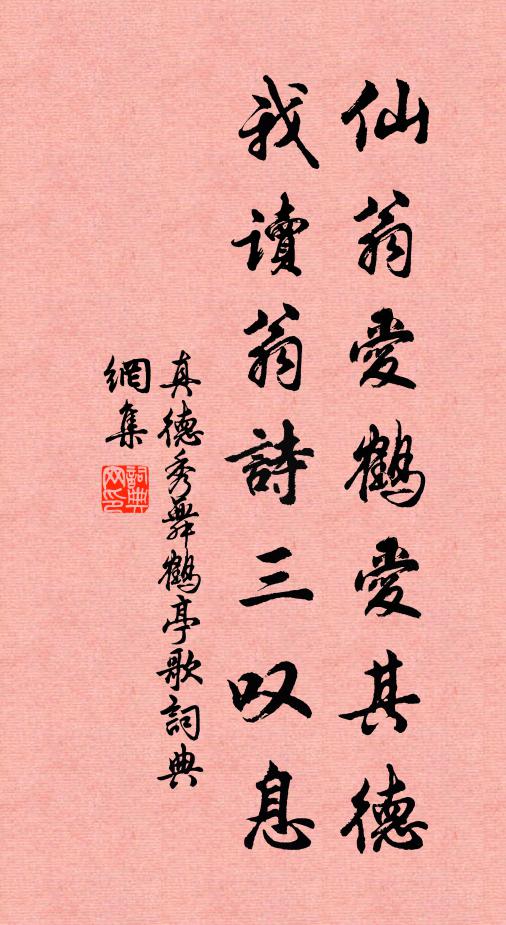 仙翁愛鶴愛其德
我讀翁詩三叹息
真德秀舞鶴亭歌詞典
網集
詞典
网印